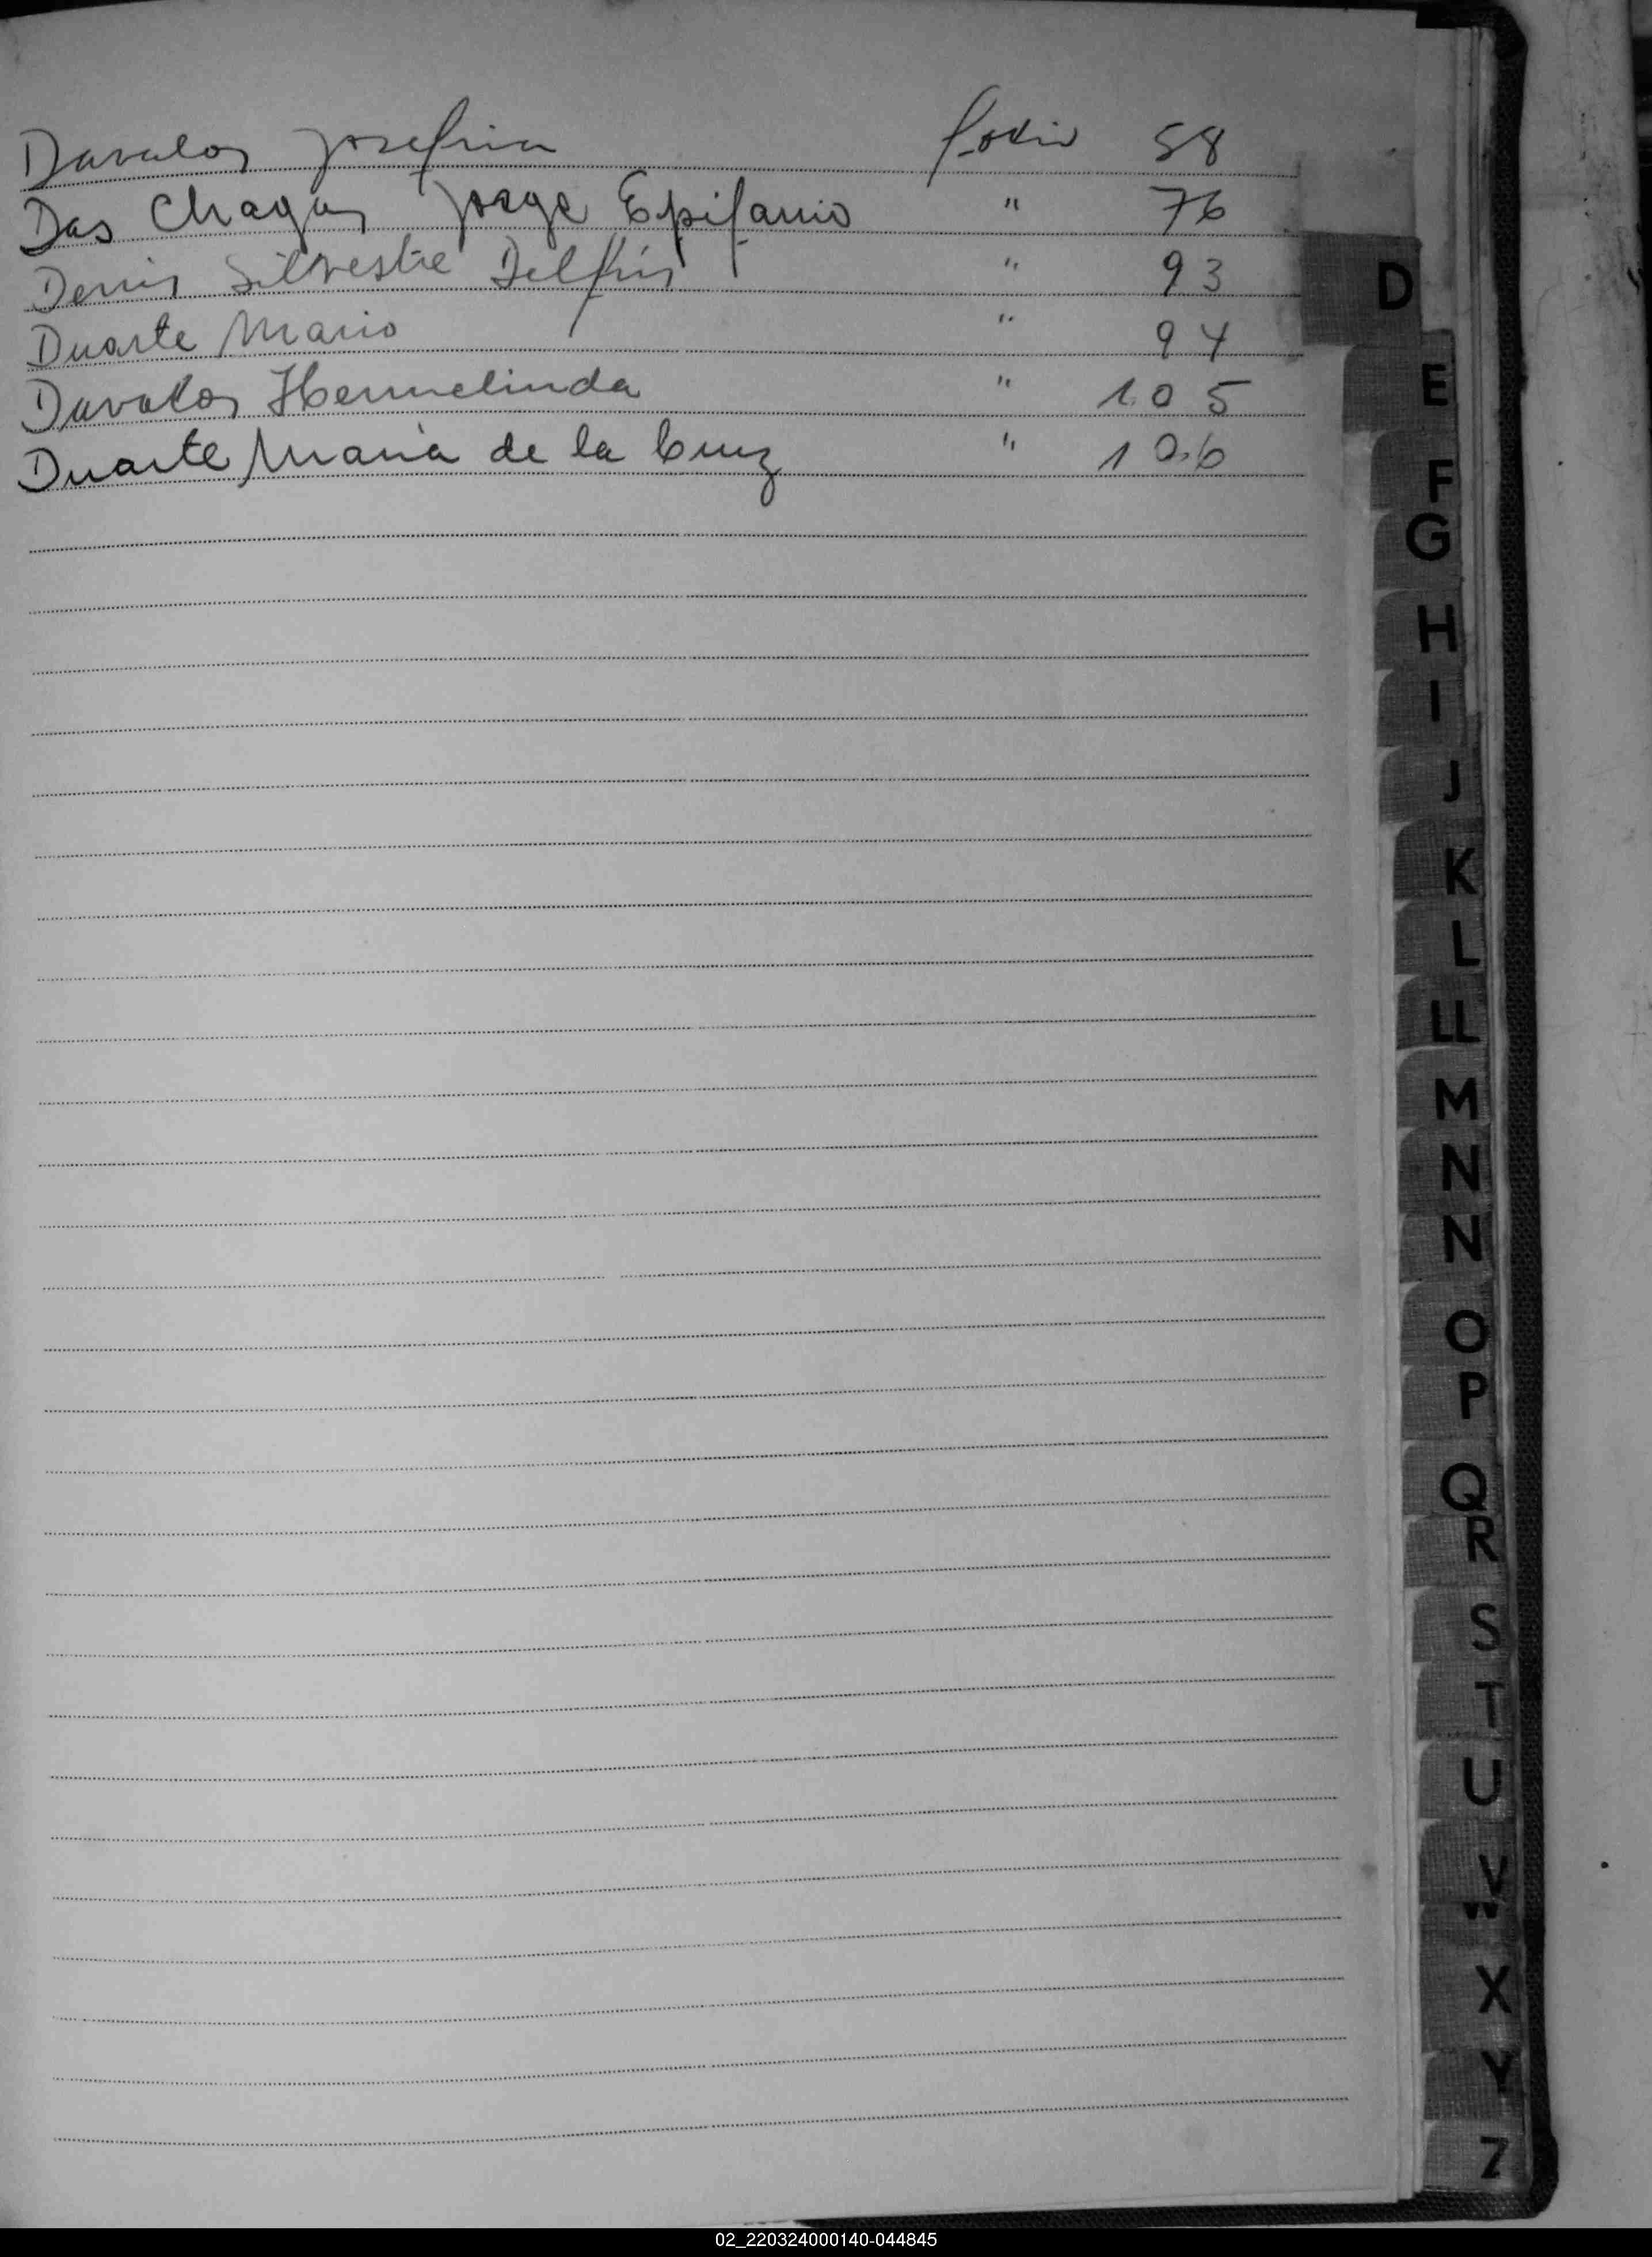 Davalos Josefina folio 58
Das Chagas Jorge Epifanio " 76
Denis Silvestre Delfin " 93
Duarte Mario " 94
Davalos Hermelinda " 105
Duarte Maria de la Cruz " 106
D
E
F
G
H
I
J
K
L
LL
M
N
N
O
P
Q
R
S
T
U
V
W
X
Y
Z
02_220324000140-044845